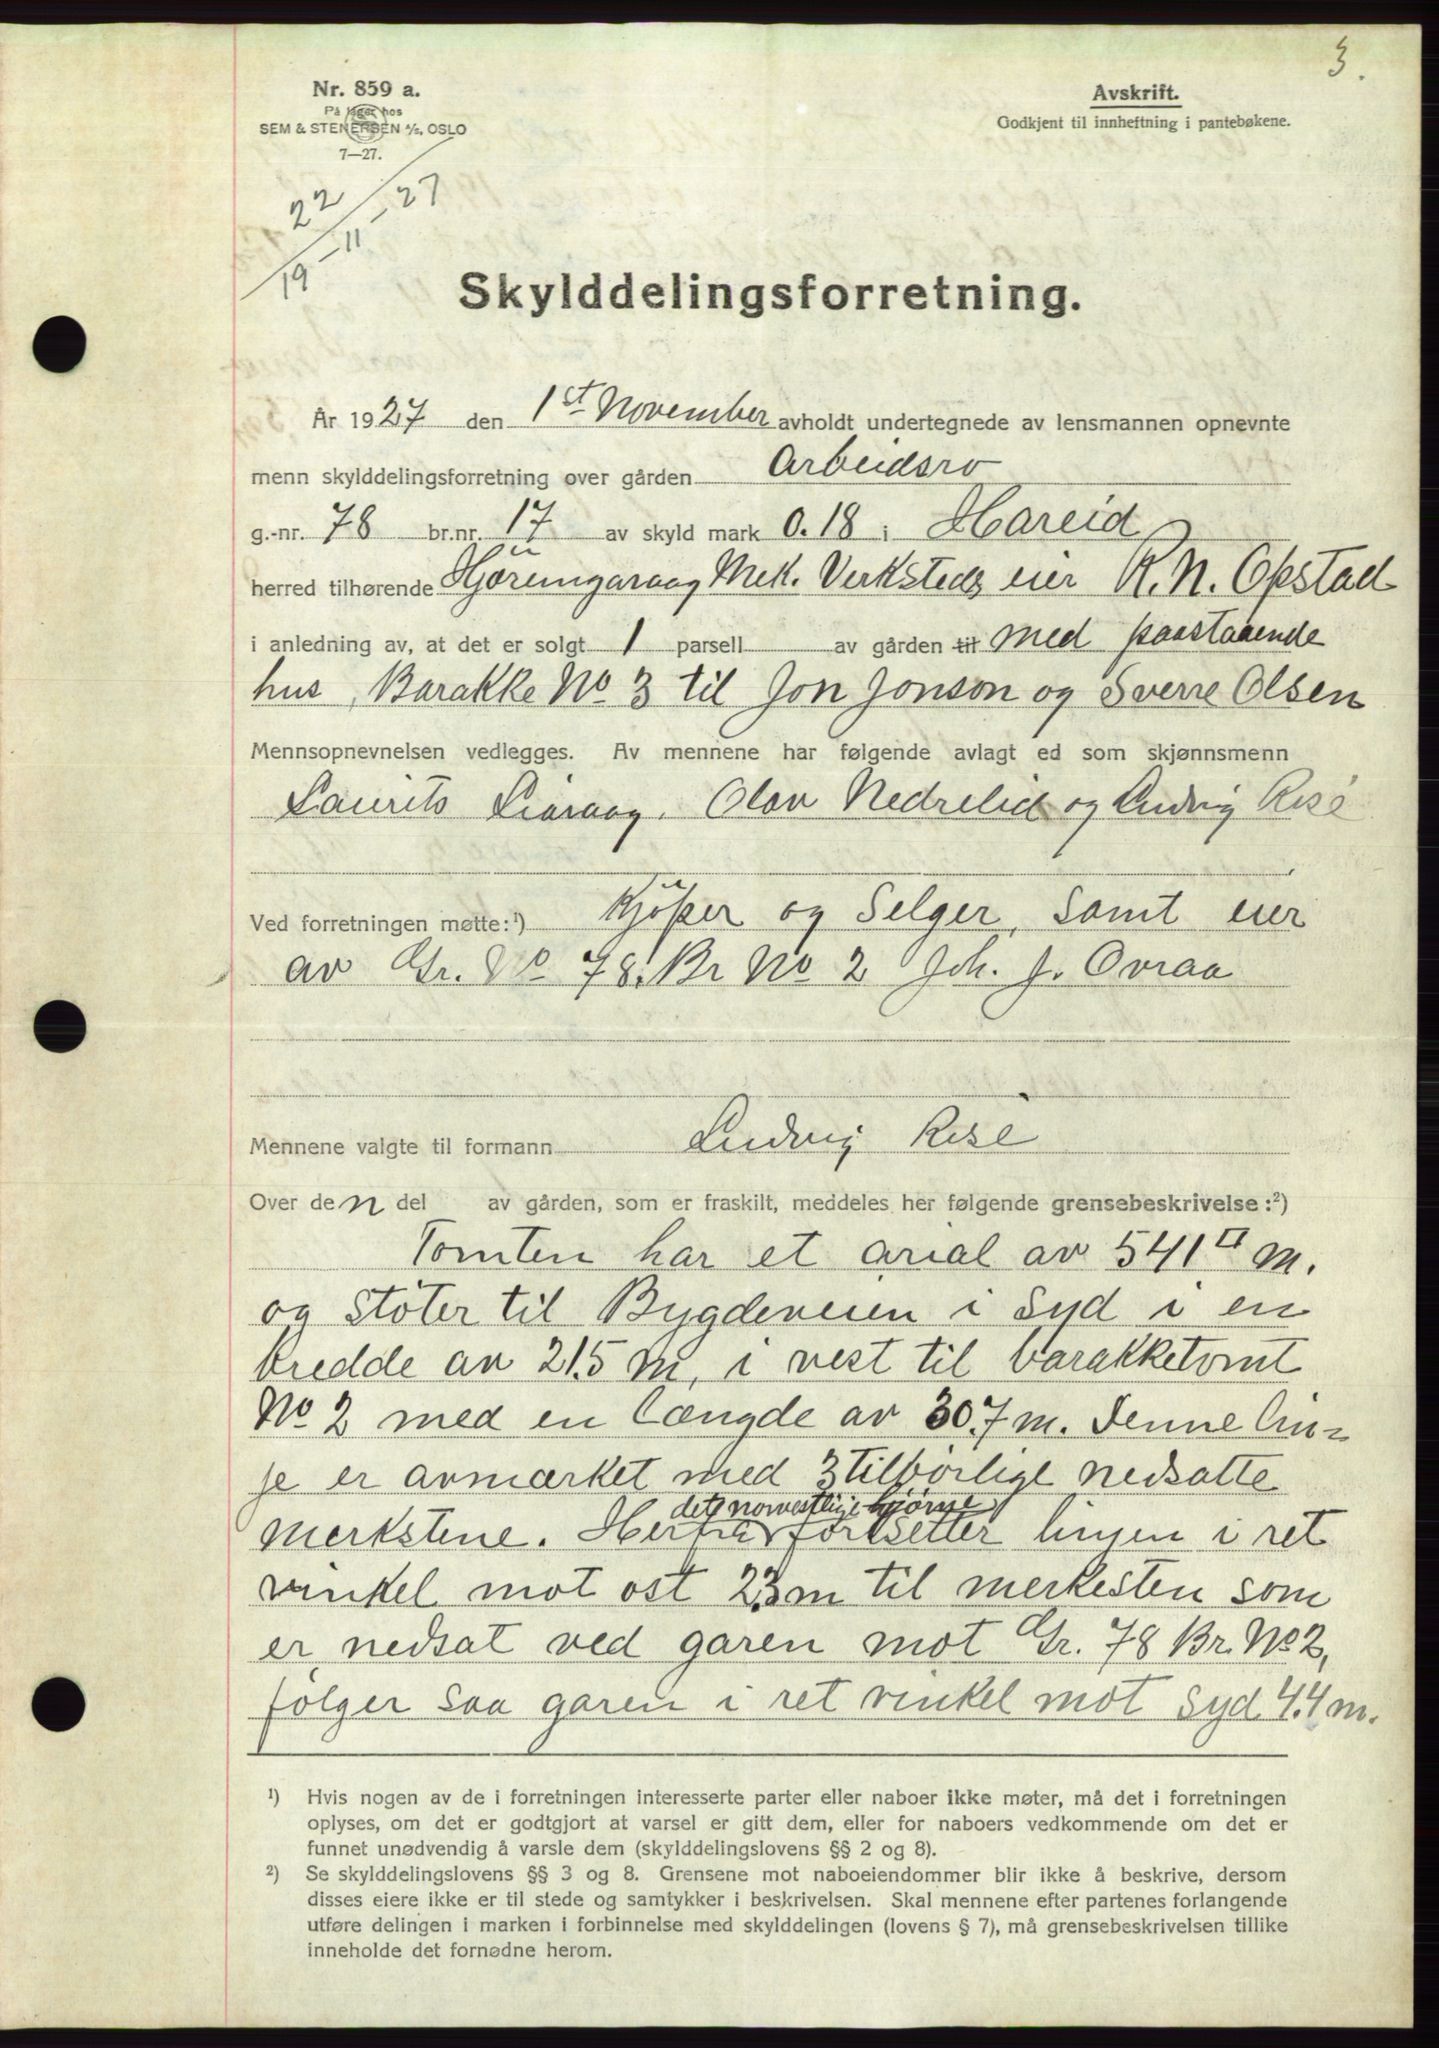 3.
Nr. 859 a.
På lager hos
SEM & STENERSEN A/S, OSLO
7—27.
Avskrift.
Godkjent til innheftning i pantebøkene.
22
19-11-27
Skylddelingsforretning.
År 1927 den 1st November avholdt undertegnede av lensmannen opnevnte
menn skylddelingsforretning over gården Arbeidsro
g.-nr. 78 br.nr. 17 av skyld mark 0.18 i Hareid
herred tilhørende Hjörungavaag Mek. Verksteds eier R. N. Opstad
i anledning av, at det er solgt 1 parsell av gården til med paastaaende
hus, Barakke No 3 til Jon Jonson og Sverre Olsen
Mennsopnevnelsen vedlegges. Av mennene har følgende avlagt ed som skjønnsmenn
Laurits Liavaag, Olav Nedrelid og Ludvig Risé
Ved forretningen møtte:¹) Kjöper og Selger, samt eier
av Gr. No 78. Br No 2 Joh. J. Ovraa
Mennene valgte til formann Ludvig Risé
Over den del av gården, som er fraskilt, meddeles her følgende grensebeskrivelse:²)
Tomten har et arial av 541 □ m.
og støter til Bygdeveien i syd i en
bredde av 21.5 m, i vest til barakketomt
No 2 med en længde av 30.7 m. Denne lin-
je er avmærket med 3 tilbörlige nedsatte
det norvestlige hjørne
merkstene. Herfra fortsetter linjen i ret
vinkel mot ost 23 m til merkesten som
er nedsat ved garen mot Gr. 78 Br. No 2,
følger saa garen i ret vinkel mot syd 4.4 m.
¹) Hvis nogen av de i forretningen interesserte parter eller naboer ikke møter, må det i forretningen
oplyses, om det er godtgjort at varsel er gitt dem, eller for naboers vedkommende om det er
funnet unødvendig å varsle dem (skylddelingslovens §§ 2 og 8).
²) Se skylddelingslovens §§ 3 og 8. Grensene mot naboeiendommer blir ikke å beskrive, dersom
disses eiere ikke er til stede og samtykker i beskrivelsen. Skal mennene efter partenes forlangende
utføre delingen i marken i forbinnelse med skylddelingen (lovens § 7), må grensebeskrivelsen tillike
inneholde det fornødne herom.